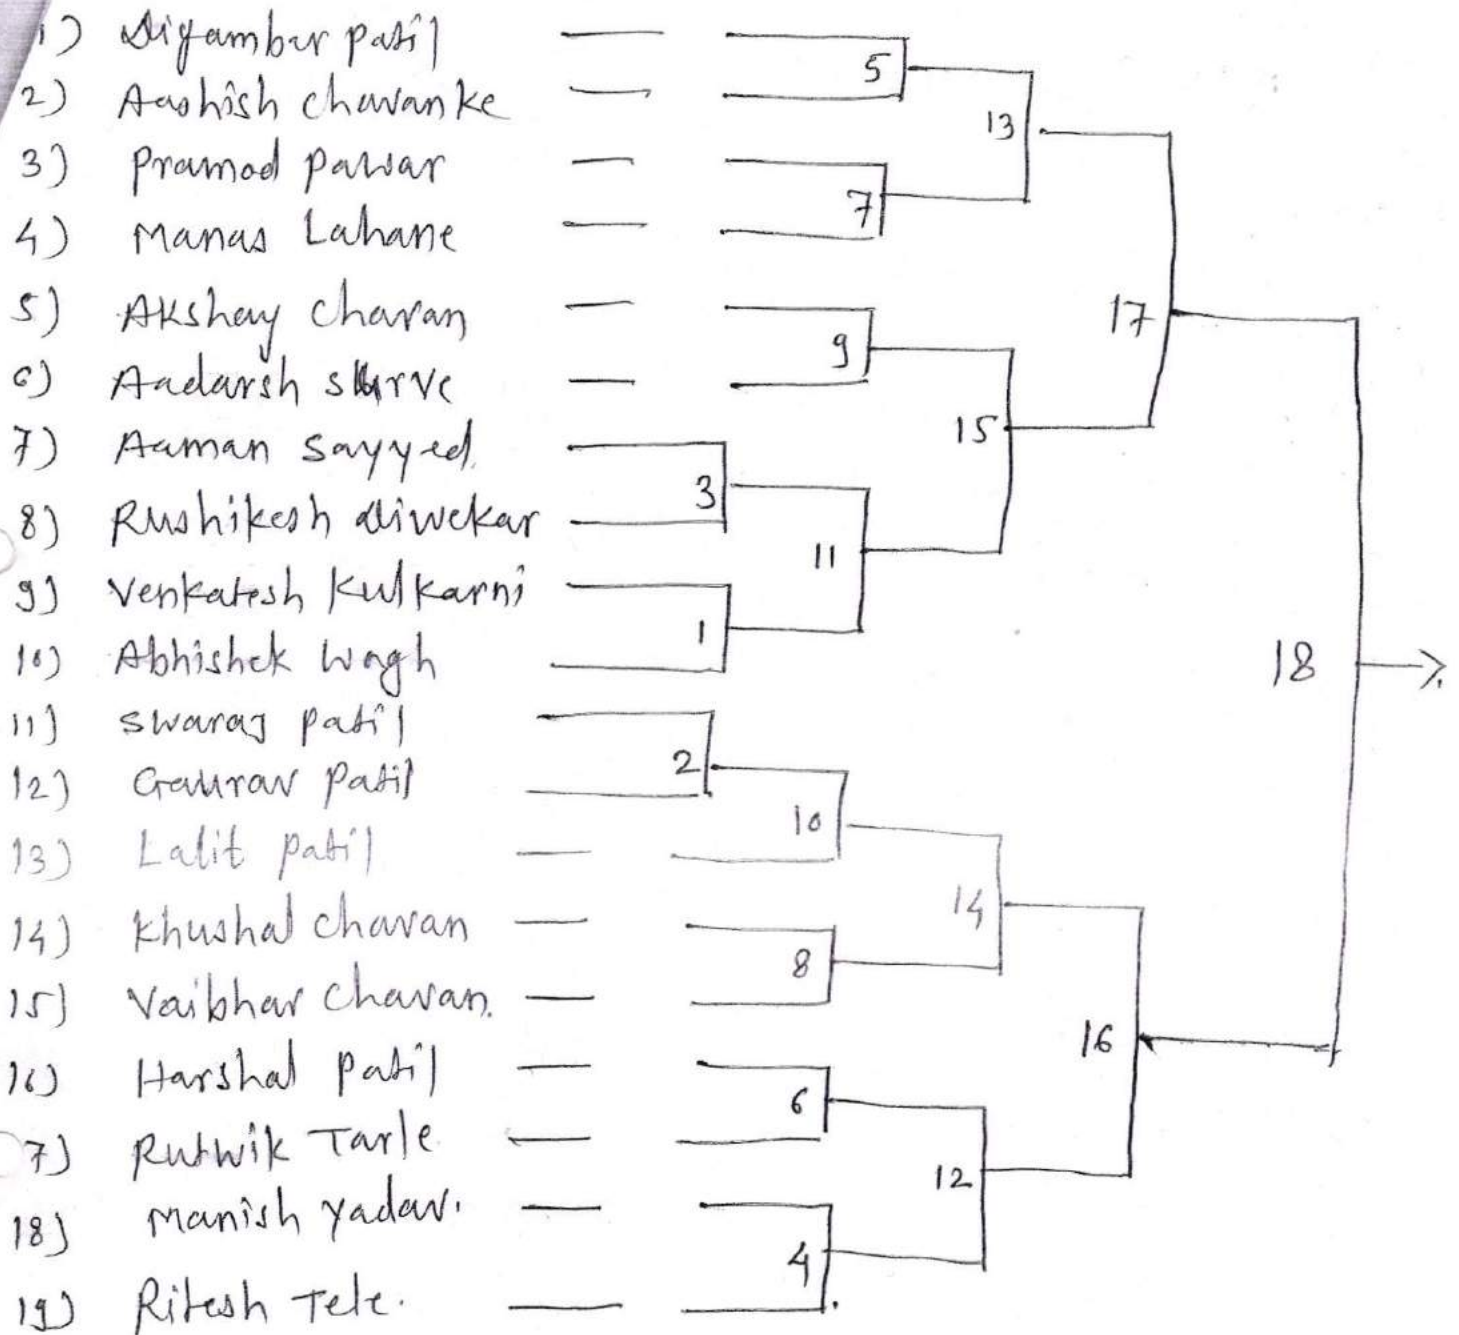 1) Digambar patil
5
2) Aashish chavanke
13
3) Pramod Pawar
7
4) Manas Lahane
5) Akshay chavan
17
9
6) Aadarsh surve
15
7) Aaman Sayyed.
3
8) Rushikesh diwekar
11
9) Venkatesh Kulkarni
1
10) Abhishek Wagh
18
11) Swaraj patil
2
12) Gaurav Patil
10
13) Lalit patil
14
14) Khushal chavan
8
15) Vaibhav Chavan.
16
16) Harshal Patil
6
7) Rutwik Tarle
12
18) Manish yadav.
4
19) Ritesh Tele.